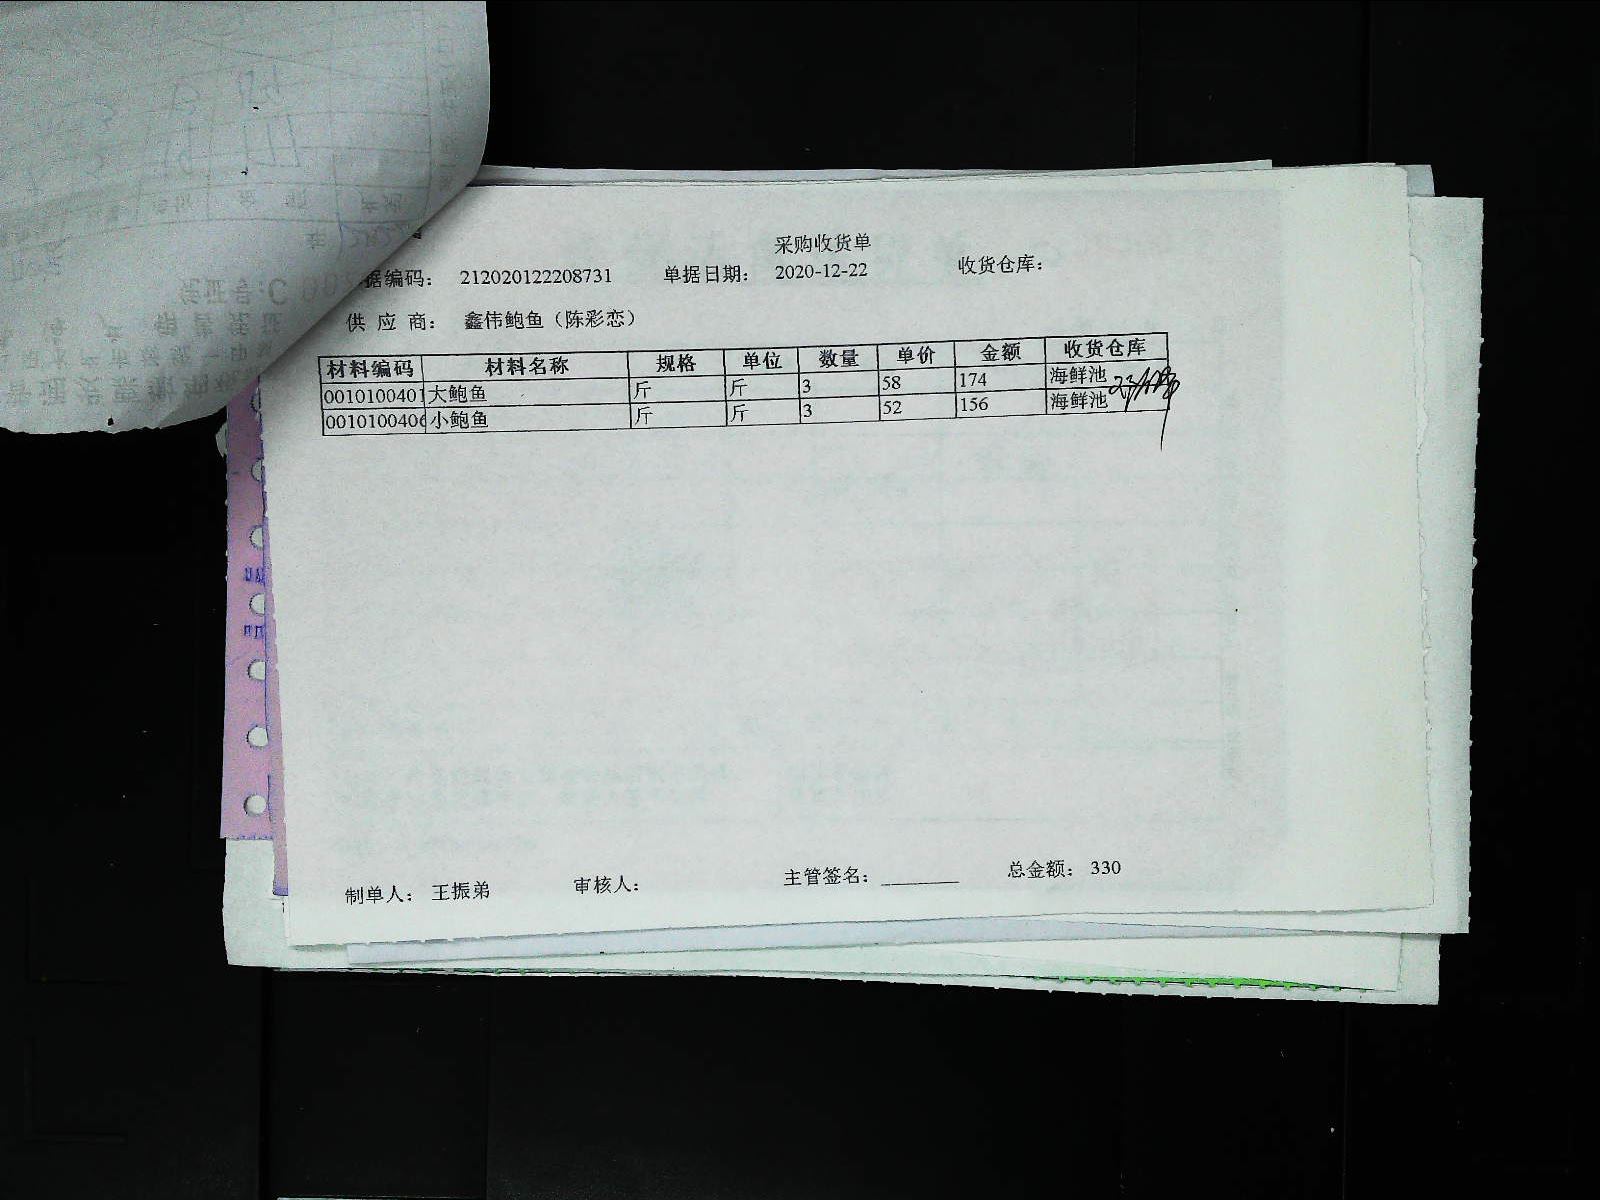 采购收货单
据编码： 212020122208731 单据日期： 2020-12-22 收货仓库：
供应商： 鑫伟鲍鱼（陈彩恋）
材料编码 材料名称 规格 单位 数量 单价 金额 收货仓库
0010100401 大鲍鱼 斤 斤 3 58 174 海鲜池
0010100406 小鲍鱼 斤 斤 3 52 156 海鲜池
制单人： 王振弟 审核人： 主管签名： 总金额： 330